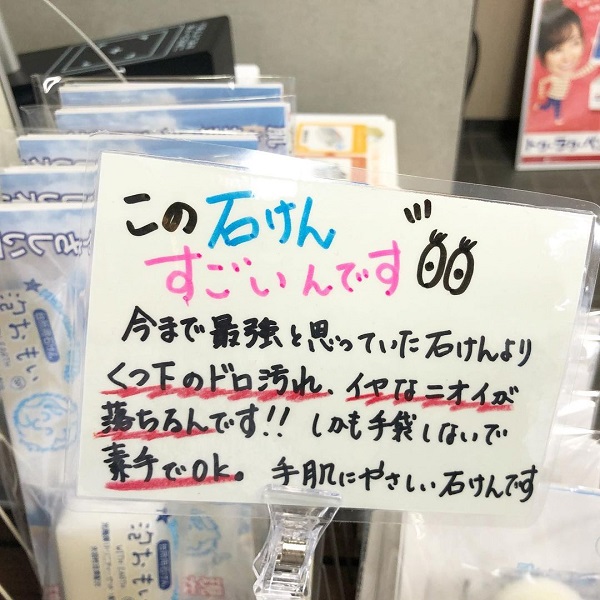 この石けん
すごいんです
今まで最強と思っていた石けんより
くつ下のドロ汚れ、イヤなニオイが
落ちるんです!! しかも手袋しないで
素手でOK。 手肌にやさしい石けんです
さしい
泡おもい
泡おもい